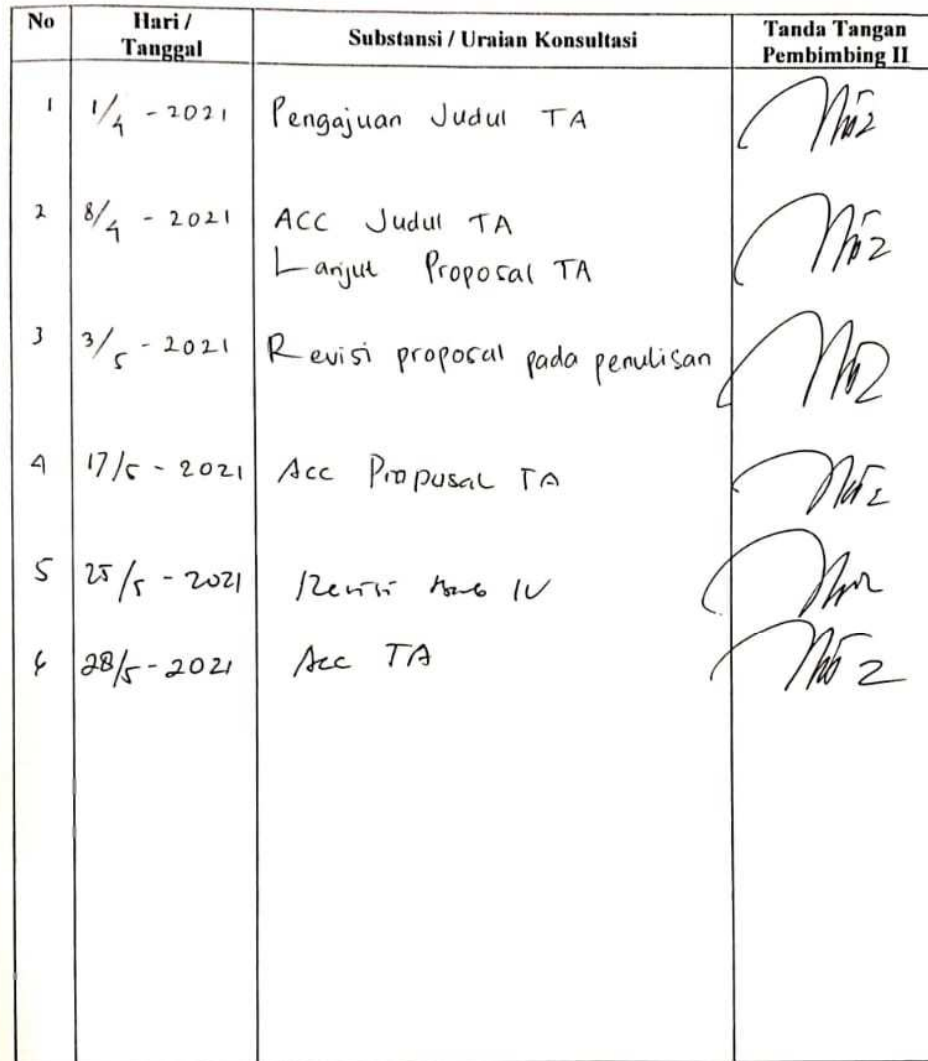 No Hari / Tanggal Substansi / Uraian Konsultasi Tanda Tangan Pembimbing II
1 1/4 - 2021 Pengajuan Judul TA
2 8/4 - 2021 ACC Judul TA
Lanjut Proposal TA
3 3/5 - 2021 Revisi proposal pada penulisan
4 17/5 - 2021 Acc Proposal TA
5 25/5 - 2021 Revisi Bab IV
6 28/5 - 2021 Acc TA